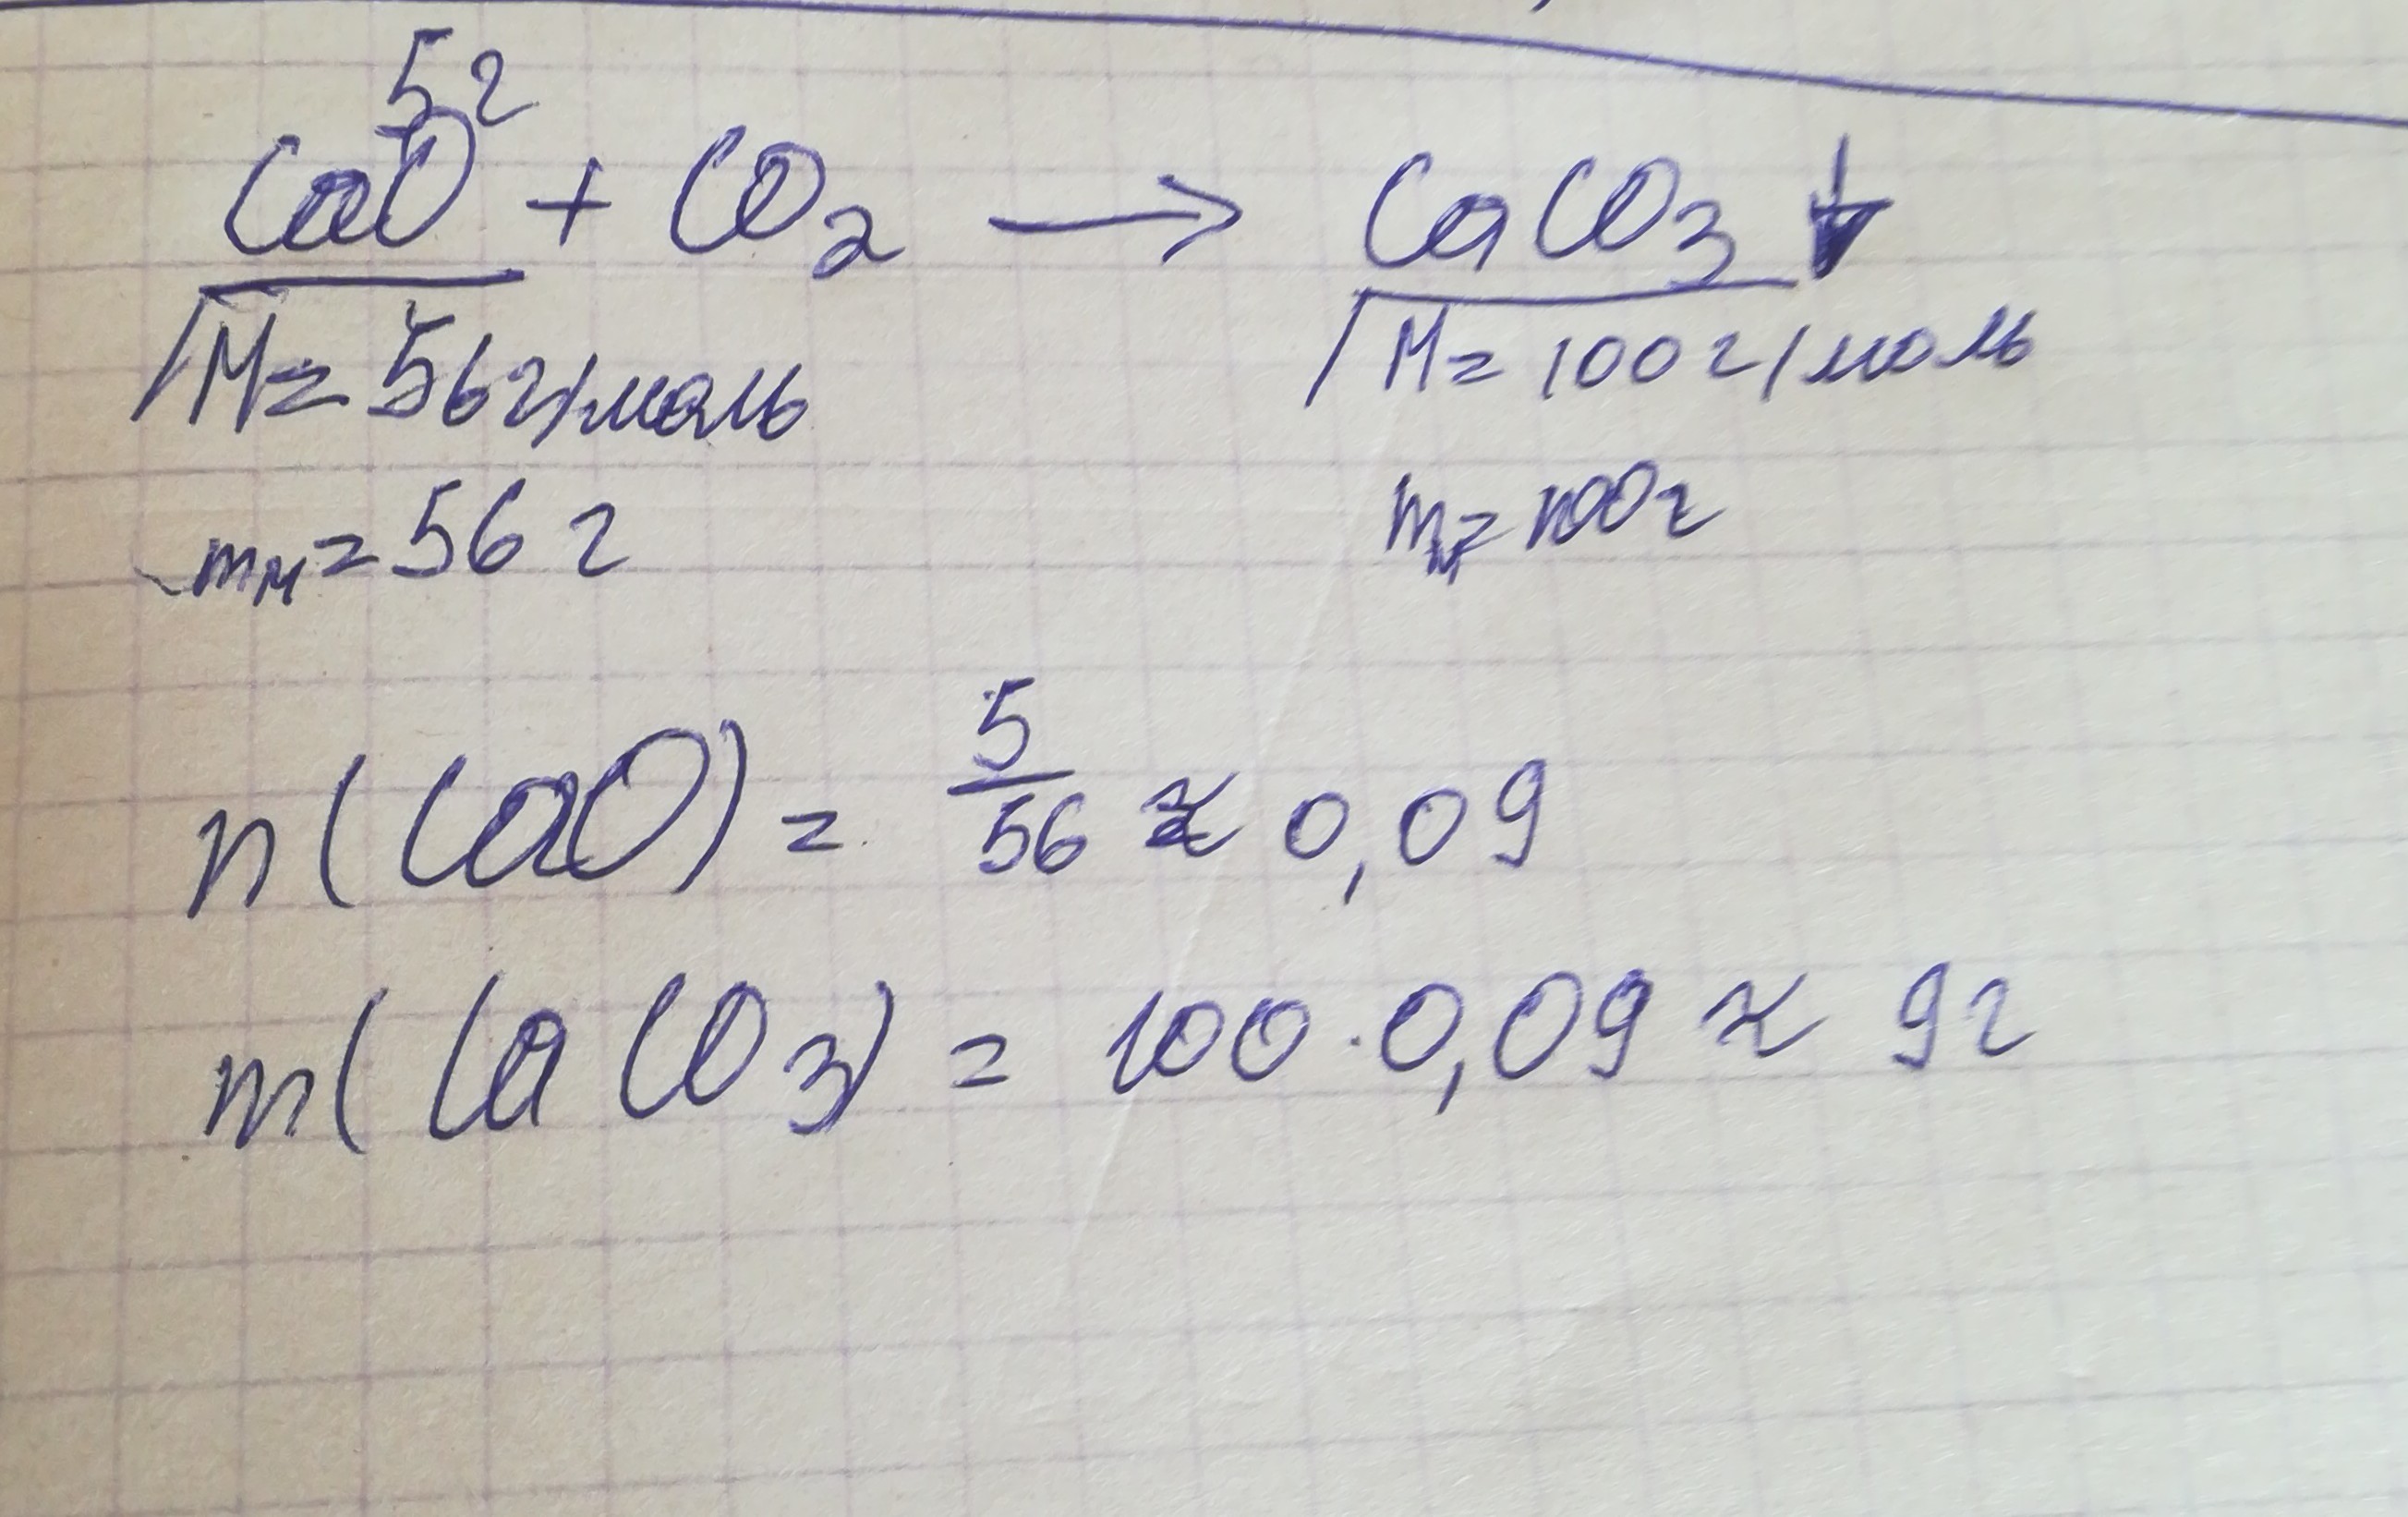 5г
CaO + CO₂ → CaCO₃ ↓
M = 56 г/моль M = 100 г/моль
mм = 56 г mм = 100г
n(CaO) = 5/56 ≈ 0,09
m(CaCO₃) = 100 · 0,09 ≈ 9г